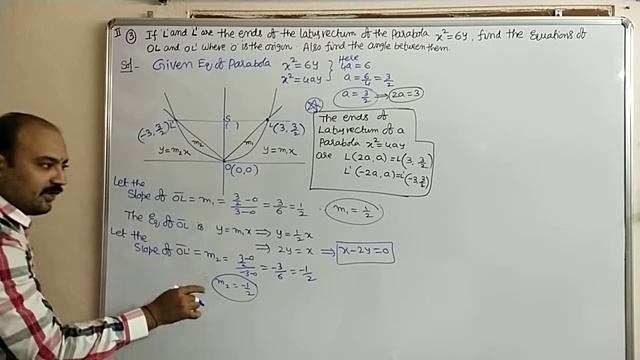 II ③ If L and L' are the ends of the latusrectum of the Parabola x²=6y, find the Equations of
OL and OL' where 'O' is the origin. Also find the angle between them.
Sol- Given Eq of Parabola x²=6y
x²=4ay
Here
4a=6
a=6/4=3/2
a=3/2 ⇒ 2a=3
The ends of
Latusrectum of a
Parabola x²=4ay
are L(2a,a)=L(3,3/2)
L'(-2a,a)=L'(-3,3/2)
(-3,3/2)L' S( ) L(3,3/2)
m₂ m₁
y=m₂x y=m₁x
O(0,0)
Let the
Slope of OL = m₁ = (3/2-0)/(3-0) = 3/6 = 1/2 ∴ m₁=1/2
The Eq of OL is y=m₁x ⇒ y=1/2x
⇒ 2y=x ⇒ x-2y=0
Let the
Slope of OL' = m₂ = (3/2-0)/(-3-0) = -3/6 = -1/2
m₂=-1/2